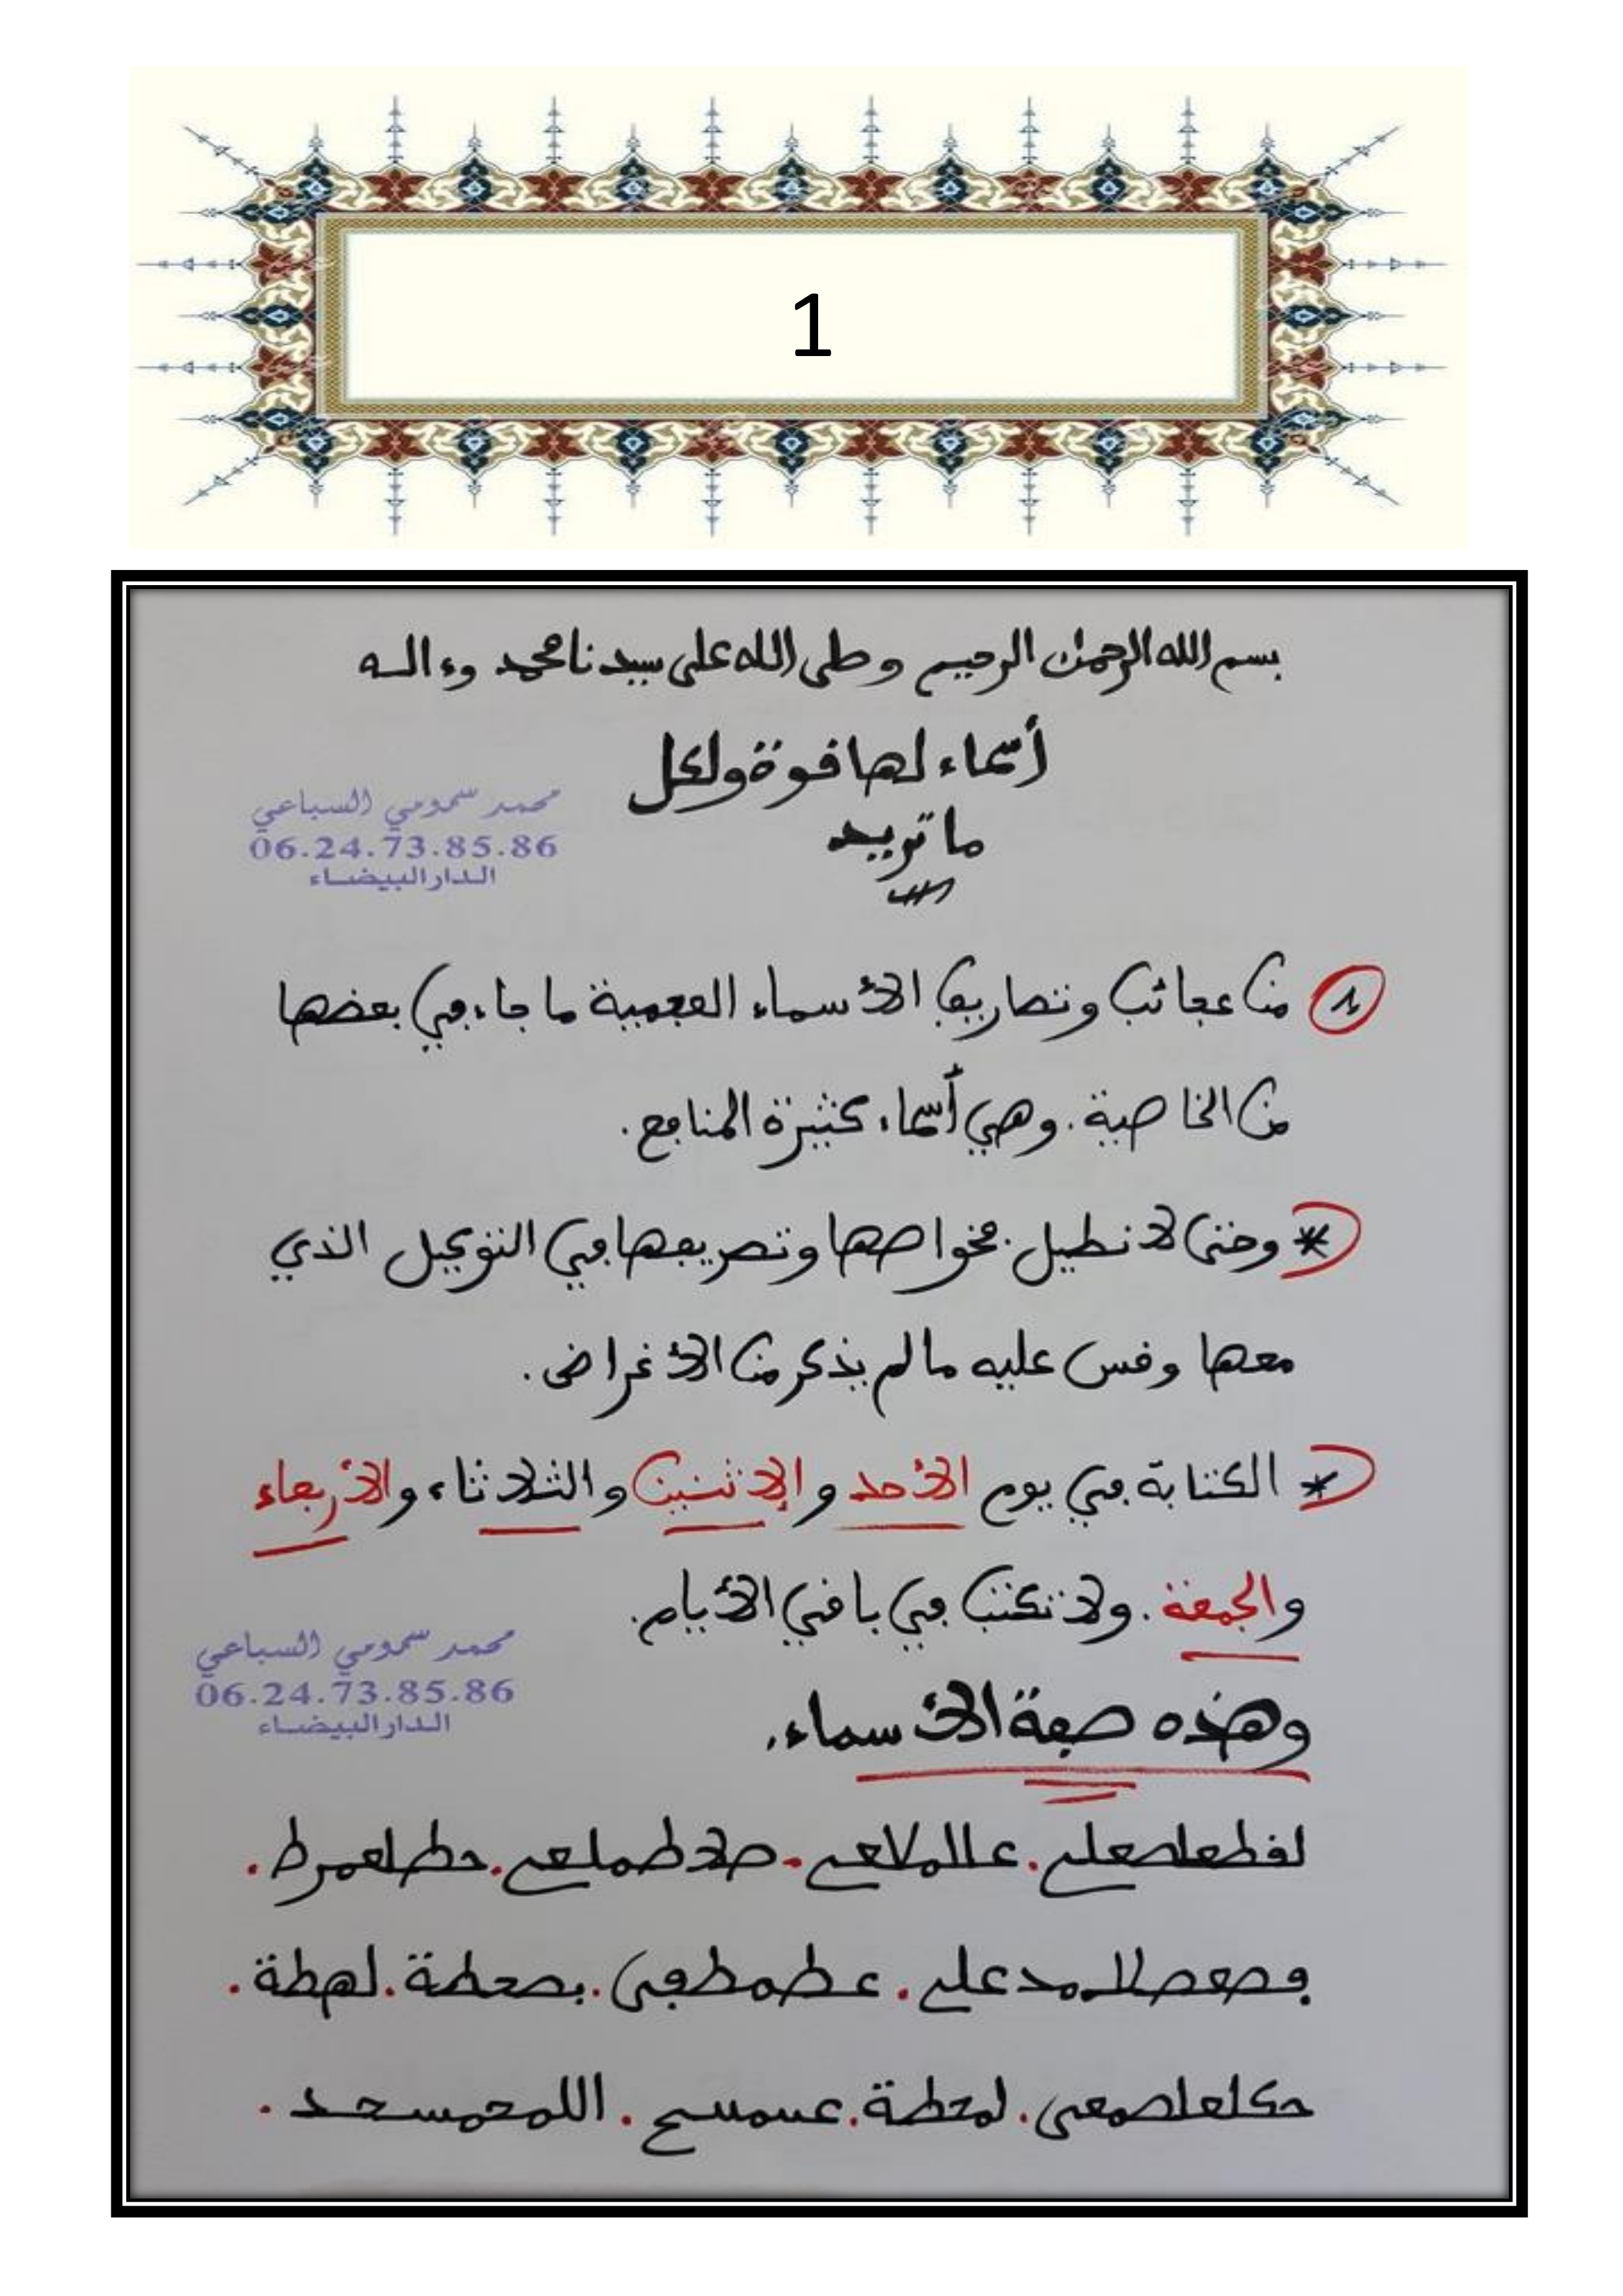 1
بسم الله الرحمن الرحيم وصلى الله على سيدنا محمد وءاله
أسماء لها قوة ولكل
ما تريد
محمد سمومي السباعي
06.24.73.85.86
الدار البيضاء
1 من عجائب وتصاريف الأسماء العجمية ما جاء في بعضها
من الخاصية. وهي أسماء كثيرة المنافع.
* وحتى لا نطيل بخواصها وتصريفها في التوكيل الذي
معها وقس عليه ما لم يذكر من الأغراض.
* الكتابة في يوم الأحد والإثنين والثلاثاء والأربعاء
والجمعة. ولا تكتب في باقي الأيام.
محمد سمومي السباعي
06.24.73.85.86
الدار البيضاء
وهذه صفة الأسماء.
لهطة.
لمعطة.